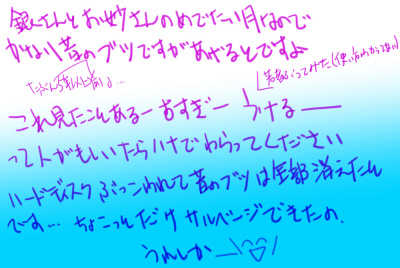 銀さんとお妙さんのめでたい月なので
かなり昔のブツですがあげるとですよ
たぶん5年以上前よ…
これ見たことあるー おすぎー うけるーー
って人がもしいたらハナでわらってください
ハードディスクぶっこわれて昔のブツは全部消えたん
ですの… ちょこっとだけサルベージできたの、
うれしかー\(^▽^)/